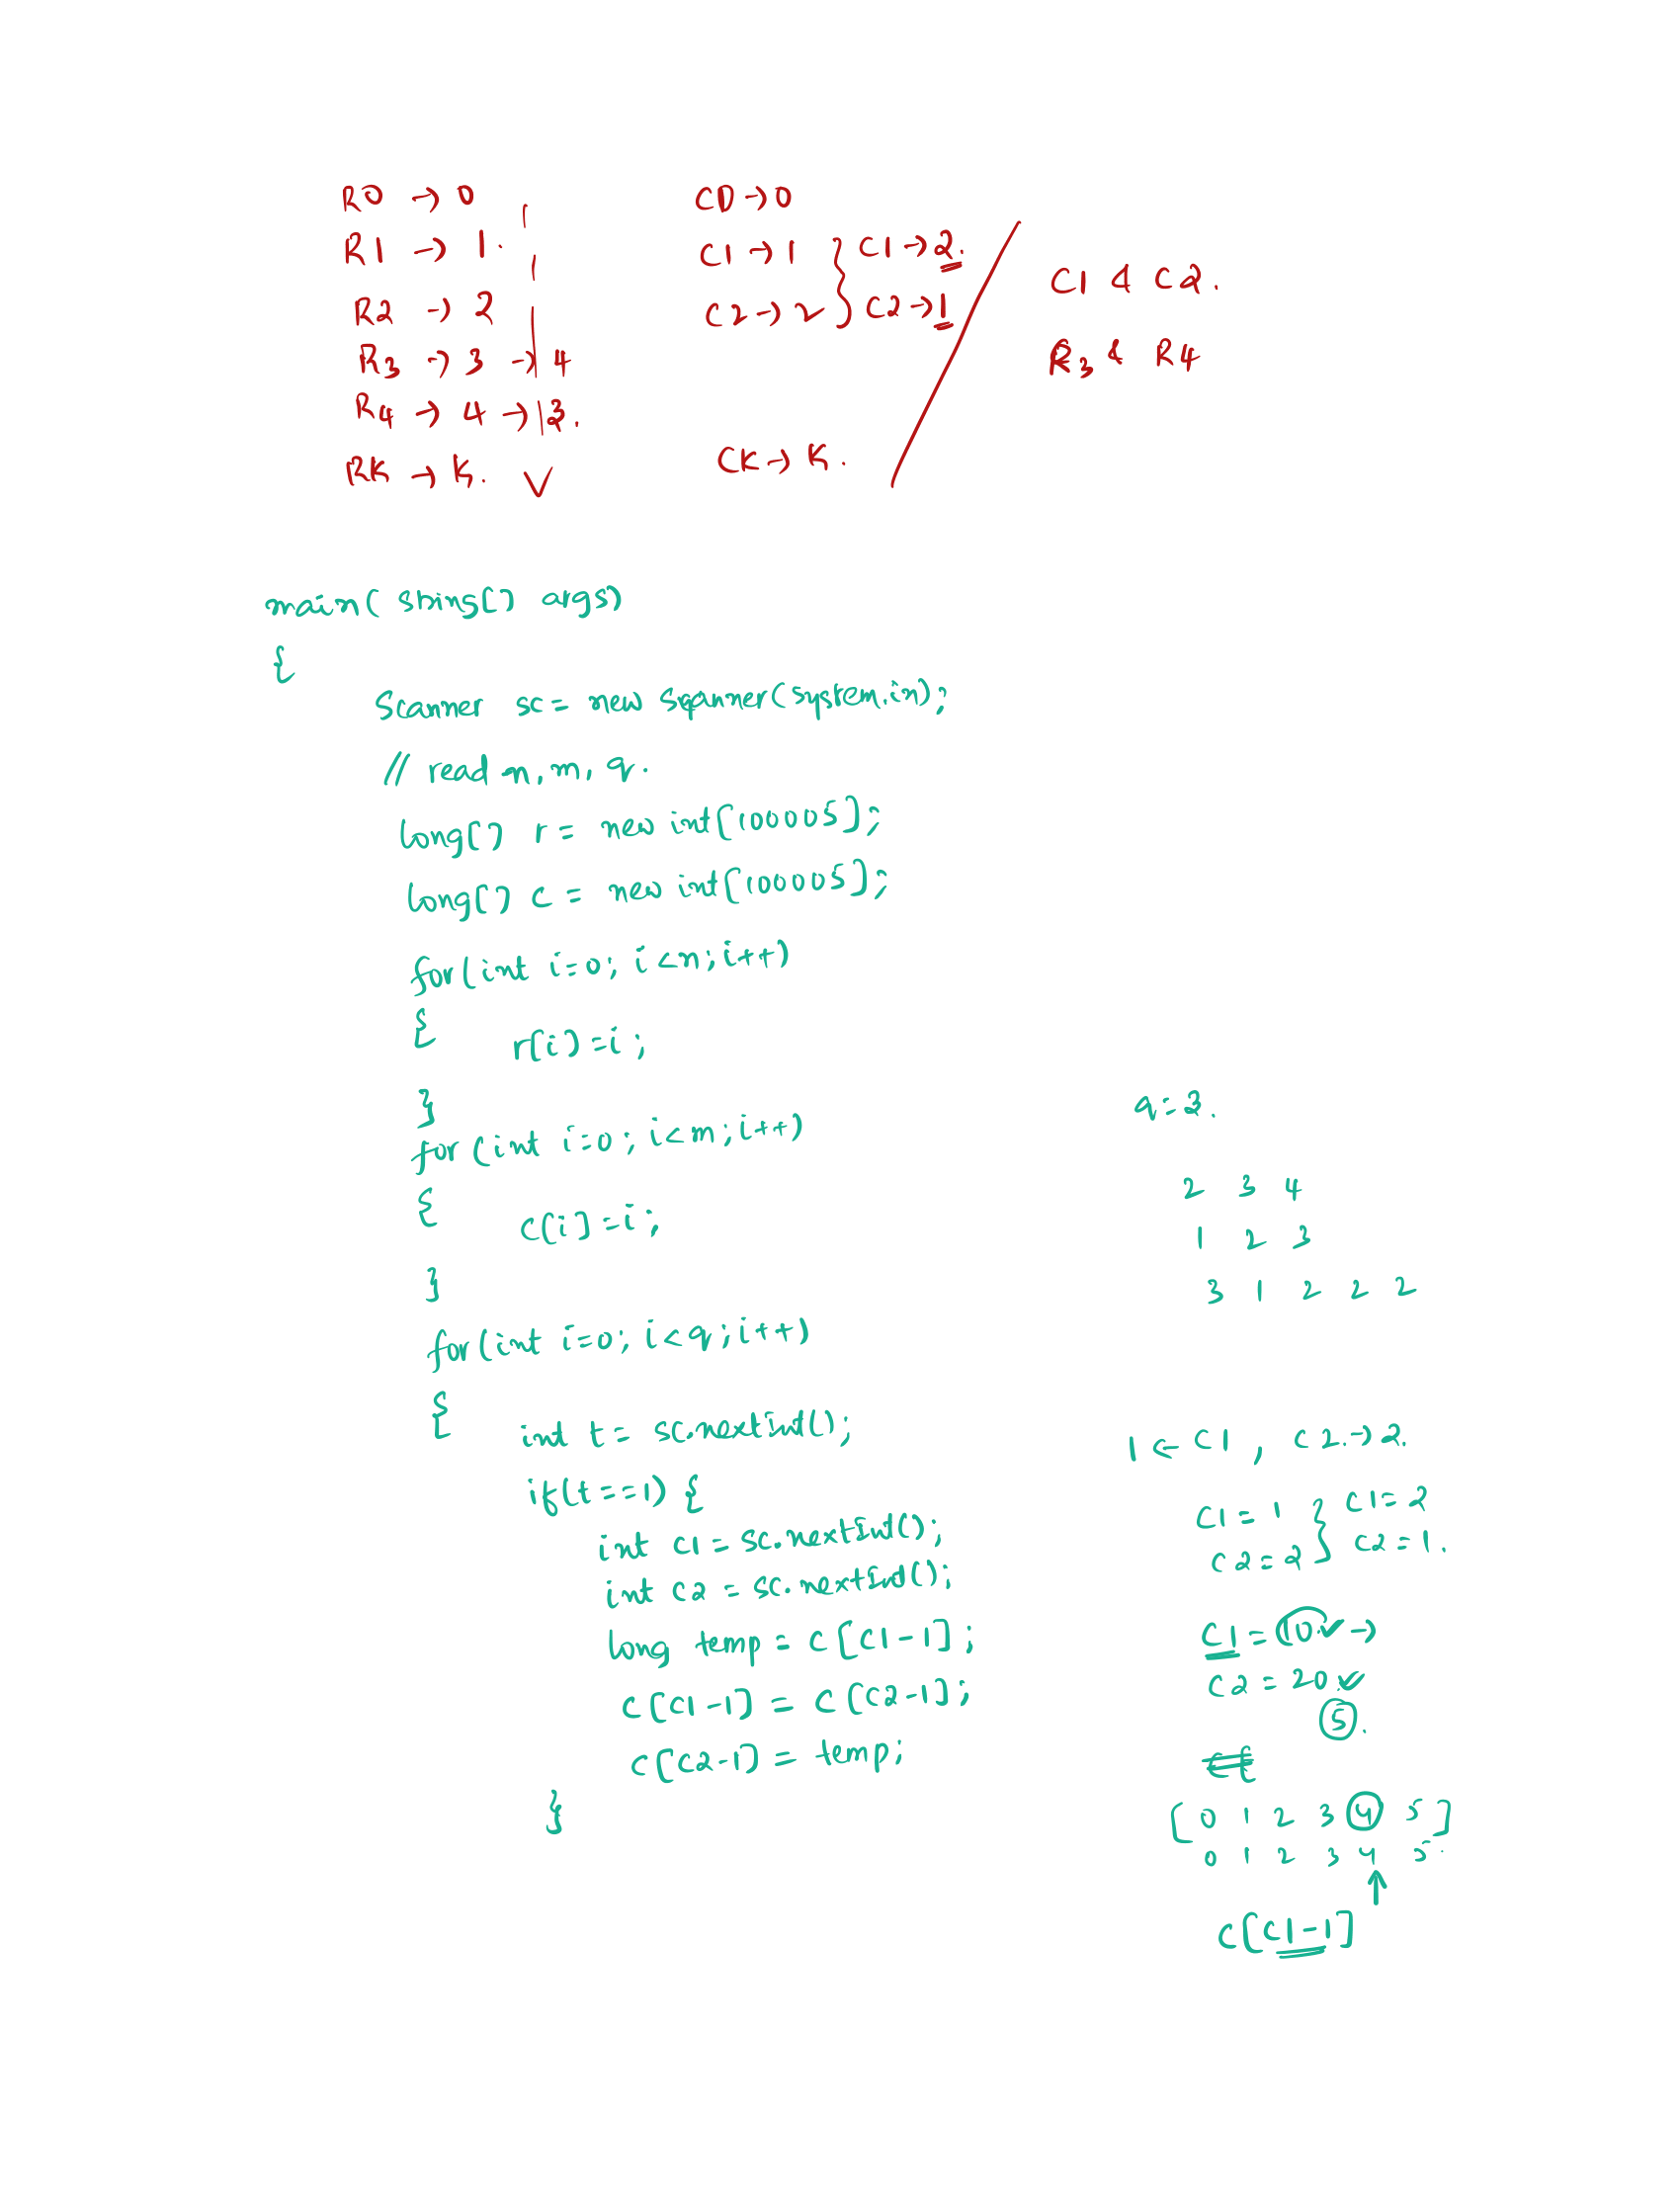 R0 → 0
R1 → 1.
R2 → 2
R3 → 3 → 4
R4 → 4 → 3.
RK → K.
C0 → 0
C1 → 1 } C1 → 2.
C2 → 2 } C2 → 1
CK → K.
C1 & C2.
R3 & R4
main( string[] args)
{
Scanner sc = new Scanner(system.in);
// read n, m, q.
long[] r = new int[100005];
long[] c = new int[100005];
for(int i=0; i<n; i++)
{
r[i] = i ;
}
for (int i=0; i<m; i++)
{
c[i] = i ;
}
for(int i=0; i<q; i++)
{
int t = sc.nextInt();
if(t==1) {
int c1 = sc.nextInt();
int c2 = sc.nextInt();
long temp = c[c1-1];
c[c1-1] = c[c2-1];
c[c2-1] = temp;
}
q=3.
2 3 4
1 2 3
3 1 2 2 2
1 ← C1 , C2. → 2.
C1 = 1 } C1 = 2
C2 = 2 } C2 = 1.
C1 = 10. →
C2 = 20
5.
[ 0 1 2 3 4 5 ]
0 1 2 3 4 5.
↑
C[C1-1]